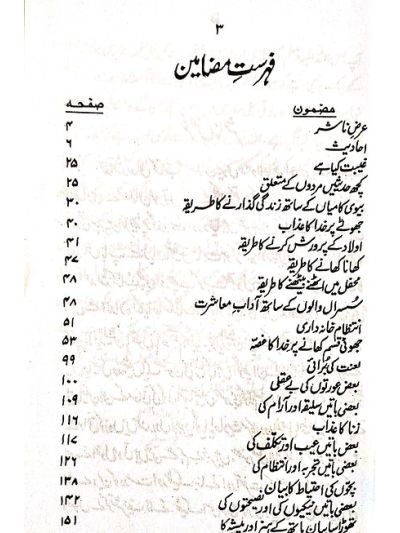 ۳
فہرستِ مضامین
مضمون صفحہ
عرضِ ناشر ۴
احادیث ۶
غیبت کیا ہے ۲۵
کچھ حدیثیں مردوں کے متعلق ۲۵
بیوی کا میاں کے ساتھ زندگی گذارنے کا طریقہ ۳۰
جھوٹے پر خدا کا عذاب ۴۰
اولاد کے پرورش کرنے کا طریقہ ۴۱
کھانا کھانے کا طریقہ ۴۷
محفل میں اٹھنے بیٹھنے کا طریقہ ۴۸
سُسرال والوں کے ساتھ آدابِ معاشرت ۴۸
انتظام خانہ داری ۵۱
جھوٹی قسم کھانے پر خدا کا غصّہ ۵۳
لعنت کی بُرائی ۹۹
بعض عورتوں کی بے عقلی ۱۰۰
بعض باتیں سلیقہ اور آرام کی ۱۰۹
زنا کا عذاب ۱۱۶
بعض باتیں عیب اور تکلّف کی ۱۱۷
بعض باتیں تجربہ اور انتظام کی ۱۲۶
بچّوں کی احتیاط کا بیان ۱۳۸
بعضی باتیں نیکیوں کی اور نصیحتوں کی ۱۴۲
تھوڑا سا بیان ہاتھ کے ہنر اور پیشہ کا ۱۵۱